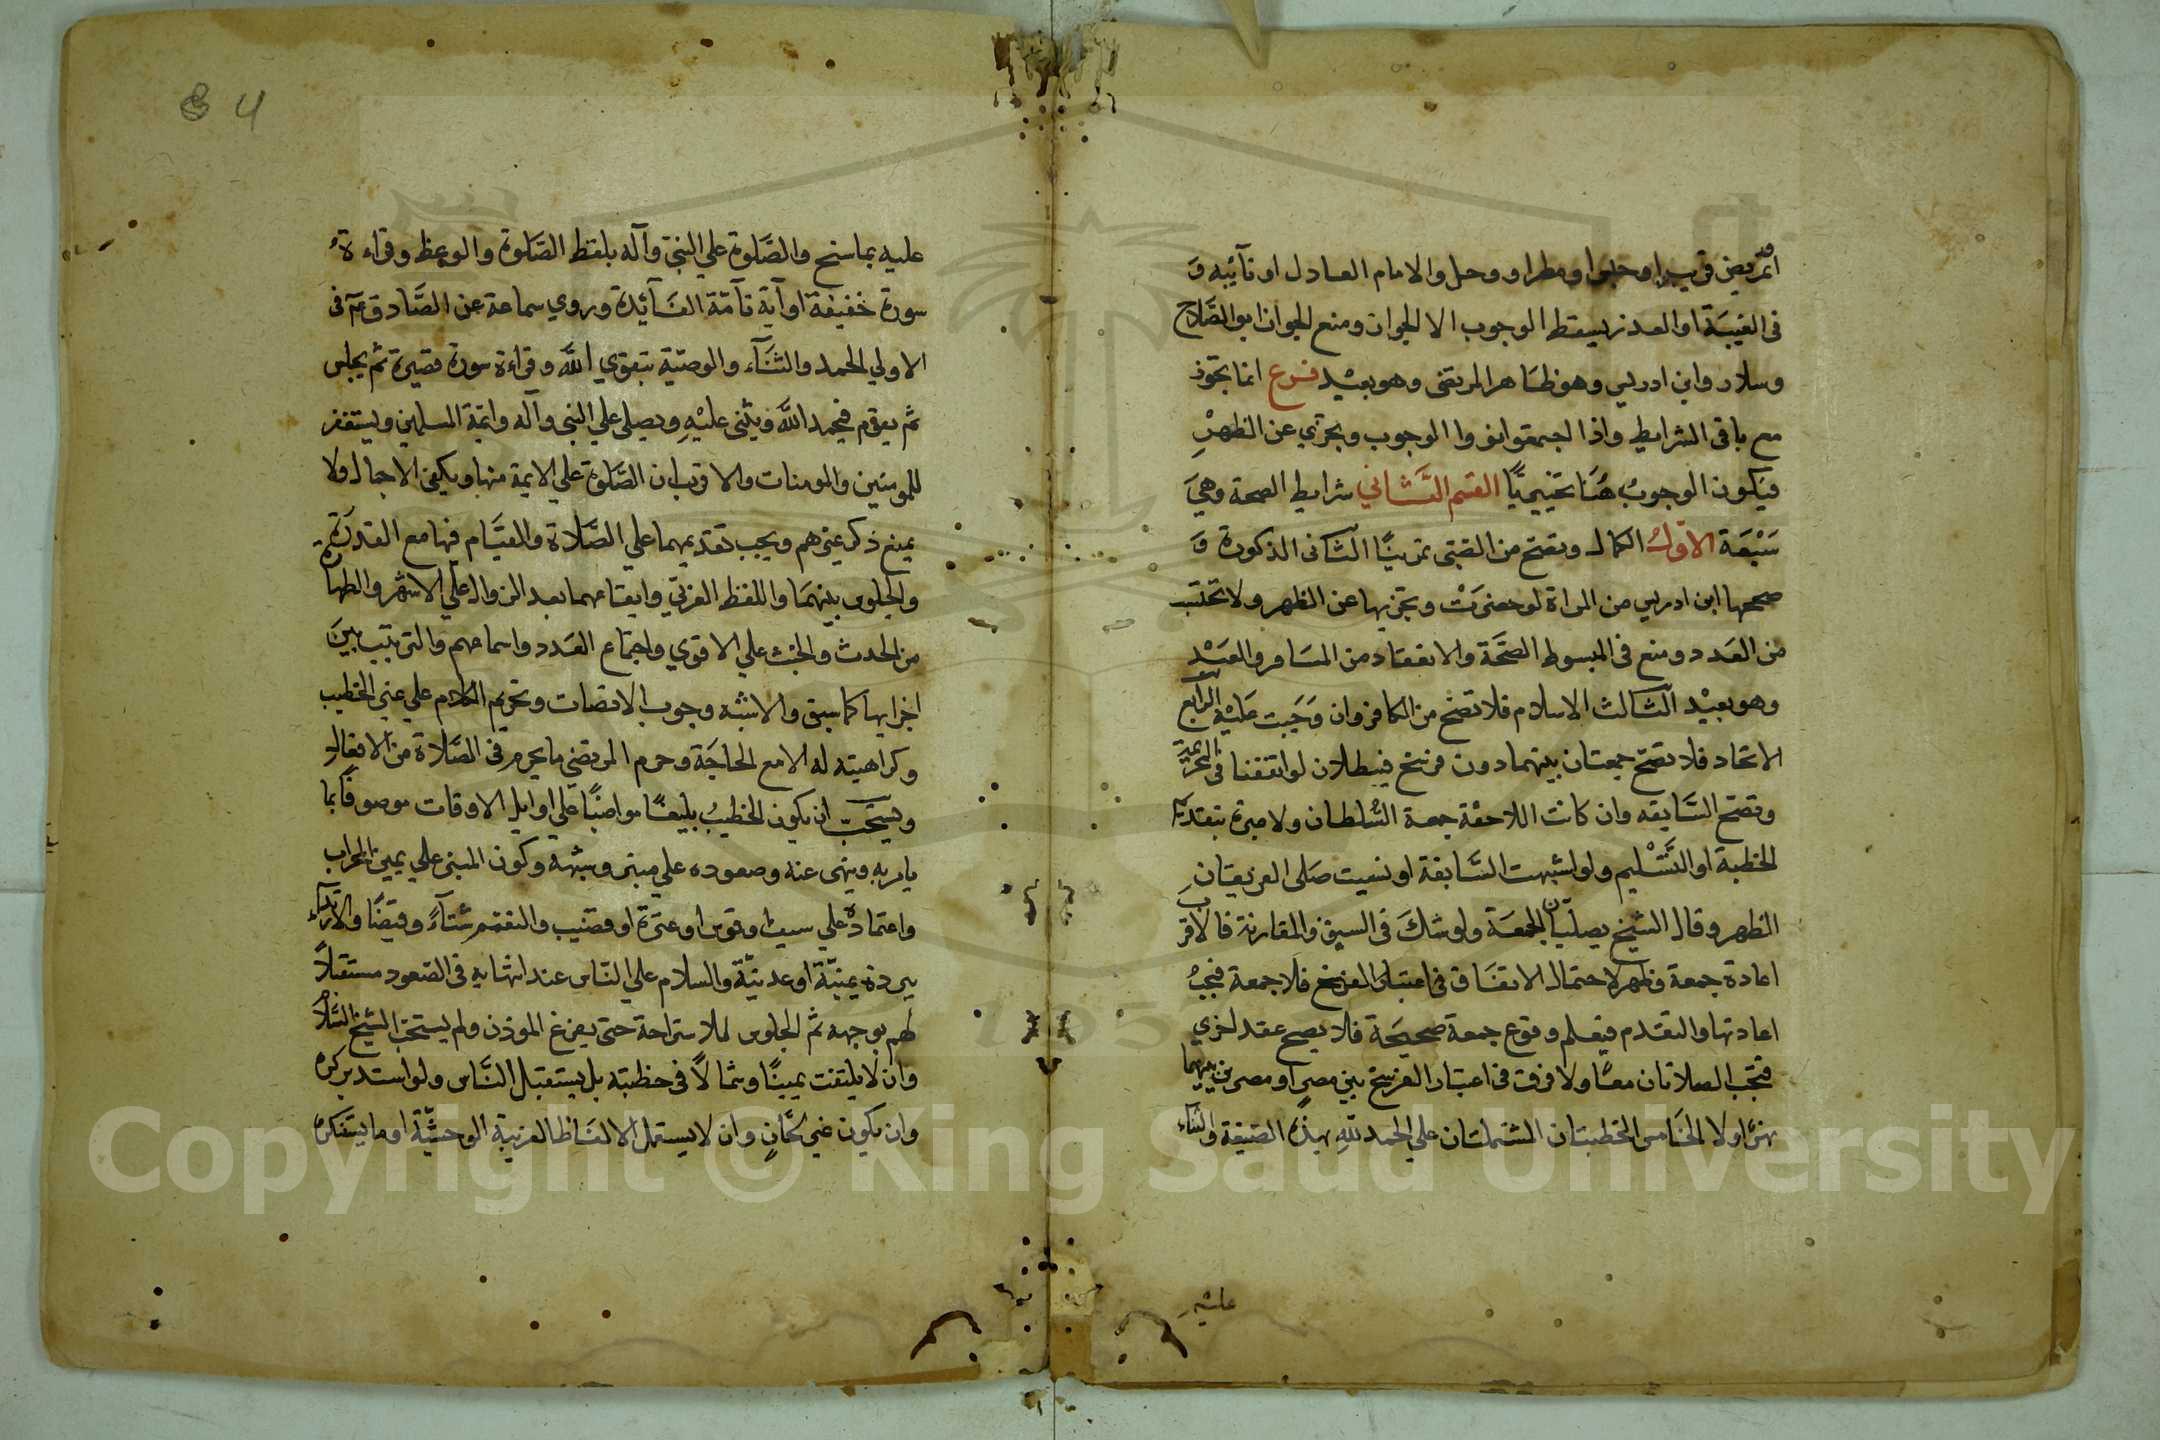 او تمريض قريب او حبس او مطر او وحل والامام العادل او نآئبه وَ
فى الغيبَة او العذر يسقط الوجوب لا الجواز ومنع الجواز ابو الصَّلاح
وسلار وابن ادريس وهو ظاهر المرتضى وهو بعيْد فرع انما تجوز
مع باقى الشرايط واذا اجتمعوا نووا الوجوب ويجزي عن الظهرِ
فيَكون الوجوبُ هُنَا تخييريًّا القسم الثَّاني شرايط الصحة وهيَ
سَبْعَة الاوّلُ الكمال وتصح من الصَّبى تمرينًا الثّانى الذكورة وَ
صححها ابن ادريس من المراة لو حضرَتْ وتجزيها عن الظهر ولا تحتسَب
من العَدد ومنع فى المبسوط الصّحَّة والانعقاد من المسَافر والعَبْد
وهو بعيْد الثّالث الاسلام فلا تصّح من الكافر وان وَجَبت عَليْهِ الرّابع
الاتحاد فلا تصّح جمعتان بينهما دون فرسخ فيبطلان لو اتفقتا فى التحريمة
وتصّح السَّابقه وان كانت اللاحقْة جمعة السُّلطان ولا عبرة بتقديم
الخطبة او التَّسْليم ولو اشبهت السَّابقة او نسيت صَلى الفريقان
الظهر وقال الشيخ يصلّيان الجمعَة ولو شكَ فى السبق والمقارنة فالاقرب
اعادة جمعة وظهر لاحتمال الاتفَاق فى اعتبار الفرسخ فلا جمعة فيجبُ
اعادتها والتقدم فيعلم وقوع جمعة صحيحَة فلا يصح عقد اخري
فتجّب الصلاتان معًا ولا فرق فى اعتبار الفرسخ بين مصرٍ او مصرين بينهما
نهرٌ او لا الخَامس الخطبتان المشتملتان علي الحمد للهِ بهذه الصّيغة والثنآء
عليْهِ
84
عليه بما سنح والصَّلوة علي النبىّ وآله بلفظ الصَّلوة والوعظ وقراءة
سورة خفيفة او آية تآمّة الفَآئدة وروي سماعة عن الصَّادق عم فى
الاولي الحمد والثنَآء والوصّية بتقوي اللَّه وقراءة سورة قصيرة ثم يجلس
ثم يقوم فيحمد اللَّه ويثنى عليْهِ ويصلى علي النبى وآله وايمّة المسلمين ويستغفر
للمومنين والمومنات والاقرب ان الصَّلوة علي الايمة منها ويكفى الاجمال ولا
يمنع ذكر غيرهم ويجب تقديمهما علي الصَّلاة والقيَام فيها مع القدرَة
والجلوس بينهمَا واللفظ العرَبّي وايقاعهما بعد الزوال علي الاشهر والطهارة
من الحدث والخبث علي الاقوي واجتماع العَدد واسماعهم والترتيب بينَ
اجزايها كما سبق والاشبه وجوب الانصات وتحريم الكلام علي غير الخطيب
وكراهيته له الا مع الحاجَة وحرم المرتضي ما يحرم فى الصَّلاة من الافعال
ويستَحَبّ ان يكون الخطيبُ بليغًا مواضبًا علي اوايل الاوقات موصوفًا بما
يامر به وينهى عنه وصعوده علي منبر وشبهه وكون المنبر علي يمين المحراب
واعتماده علي سيف او قوس او عنزة او قضيب والتعمم شتآءً وقيضًا والارتداء
ببردة يمنيّة او عدنيّة والسلام علي النّاس عند انتهايه فى الصّعود مستقبلاً
لهم بوجهه ثم الجلوس للاستراحة حتى يفرغ الموذن ولم يستحّب الشيخ السّلام
وان لا يلتفت يمينًا وشمالاً فى خطبته بل يستقبل النَّاس ولو استدبر كره
وان يكون غير لحَّانٍ وان لا يستعمل الالفَاظ الغريبة الوحشيّة او ما يستنكره
Copyright © King Saud University